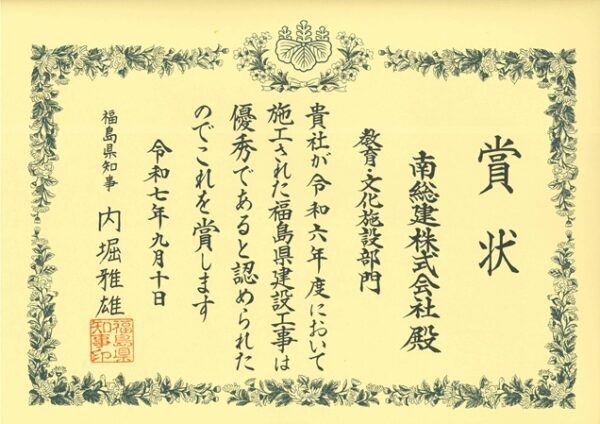 賞状
南総建株式会社 殿
教育・文化施設部門
貴社が令和六年度において
施工された福島県建設工事は
優秀であると認められた
のでこれを賞します
令和七年九月十日
福島県知事 内堀雅雄
福島県
知事印